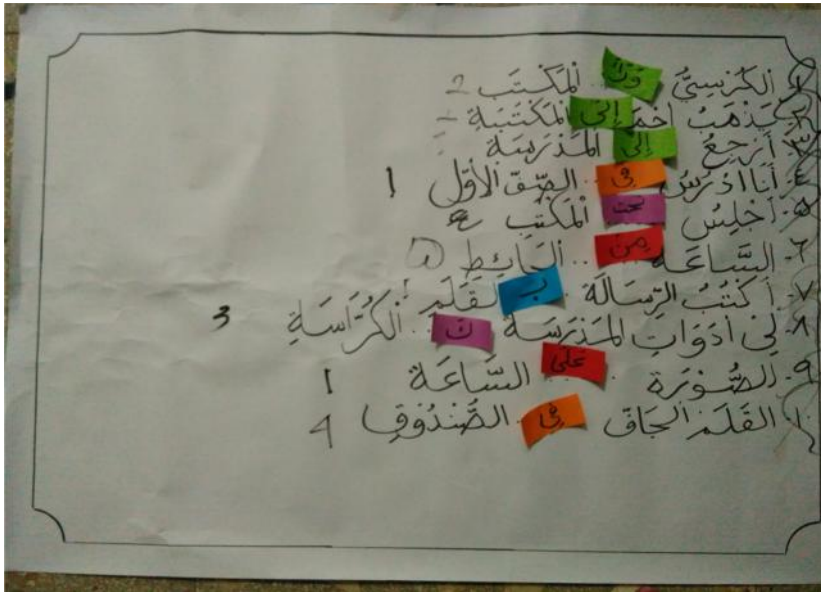 ١. الْكُرْسِيُّ فَوْقَ الْمَكْتَبِ 2
٢. يَذْهَبُ إِلَى الْمَكْتَبَةِ
٣. أَرْجِعُ إِلَى الْمَدْرَسَةِ
٤. أَنَا أَدْرُسُ فِي الصَّفِّ الْأَوَّلِ 1
٥. أَجْلِسُ تحت الْمَكْتَبِ
٦. السَّاعَة مِنَ الْحَائِطِ
٧. أَكْتُبُ الرِّسَالَةَ بِ الْقَلَمِ
٨. لِي أَدَوَاتِ الْمَدْرَسَة كَ الْكُرَّاسَةِ 3
٩. الصُّوْرَة عَلَى السَّاعَة 1
١٠. الْقَلَم الْجَاف فِي الصُّنْدُوقِ 4